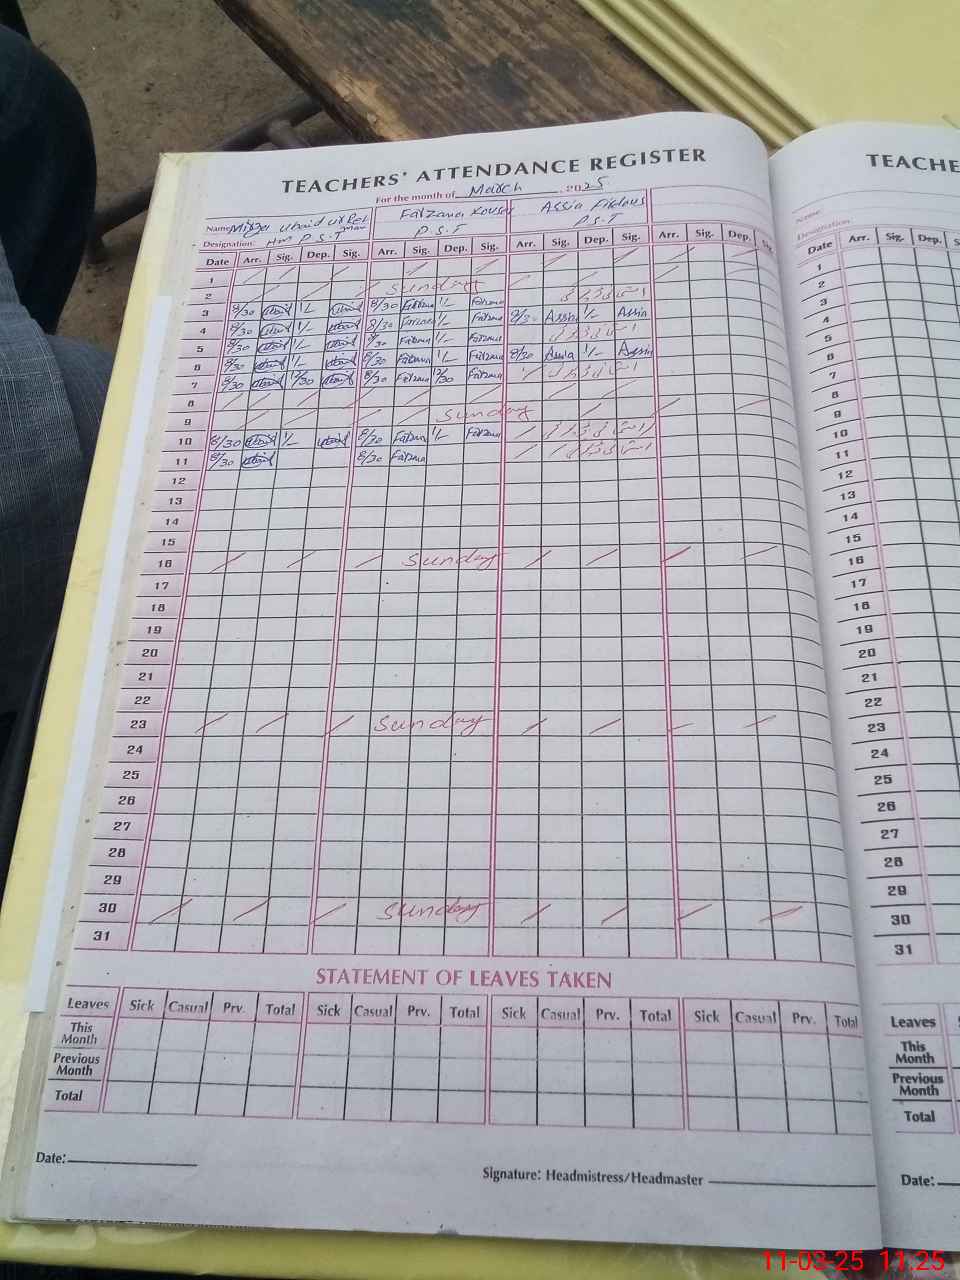 TEACHERS' ATTENDANCE REGISTER
For the month of March 2025
Name
Farzana Kouser
Assia Firdous
Designation: Hm P.S.T
P.S.T
P.S.T
Date Arr. Sig. Dep. Sig. Arr. Sig. Dep. Sig. Arr. Sig. Dep. Sig. Arr. Sig. Dep. Sig.
1
2 Sunday
3 8/30 1/- 8/30 Farzana 1/- Farzana
4 8/30 1/- 8/30 Farzana 1/- Farzana 8/30 Assia 1/- Assia
5 8/30 1/- 8/30 Farzana 1/- Farzana
6 8/30 1/- 8/30 Farzana 1/- Farzana 8/30 Assia 1/- Assia
7 8/30 12/30 8/30 Farzana 12/30 Farzana
8
9 Sunday
10 8/30 1/- 8/30 Farzana 1/- Farzana
11 8/30 8/30 Farzana
12
13
14
15
16 Sunday
17
18
19
20
21
22
23 Sunday
24
25
26
27
28
29
30 Sunday
31
STATEMENT OF LEAVES TAKEN
Leaves Sick Casual Prv. Total Sick Casual Prv. Total Sick Casual Prv. Total Sick Casual Prv. Total
This Month
Previous Month
Total
Date:
Signature: Headmistress/Headmaster
TEACHE
Name:
Designation:
Date Arr. Sig. Dep. S
1
2
3
4
5
6
7
8
9
10
11
12
13
14
15
16
17
18
19
20
21
22
23
24
25
26
27
28
29
30
31
Leaves S
This Month
Previous Month
Total
Date:
11-03-25 11.25